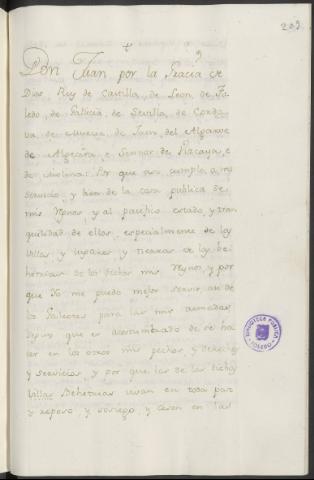 203
Don Juan por la Gracia de
Dios Rey de Castilla, de Leon, de To-
ledo, de Galicia, de Sevilla, de Cordo-
va, de Murcia, de Jaen, del Algarve
de Algecira, e Sennor de Vizcaya, e
de Molina: Por que asi cumple a mi
servicio, y bien de la cosa publica de
mis Reynos, y al pacifico estado, y tran
quilidad de ellos, especialmente de las
Villas, y Lugares, y tierras de las Be-
hetrias de los dichos mis Reynos, y por
que Yo me pueda mejor servir asi de
los Galeotes para las mis armadas,
segun que es acostumbrado de se ha
cer en los otros mis pechos, y derechos
y servicios, y por que las de las dichas
Villas Behetrias vivan en toda paz
y reposo, y sosiego, y cesen en las
BIBLIOTECA PUBLICA
TOLEDO